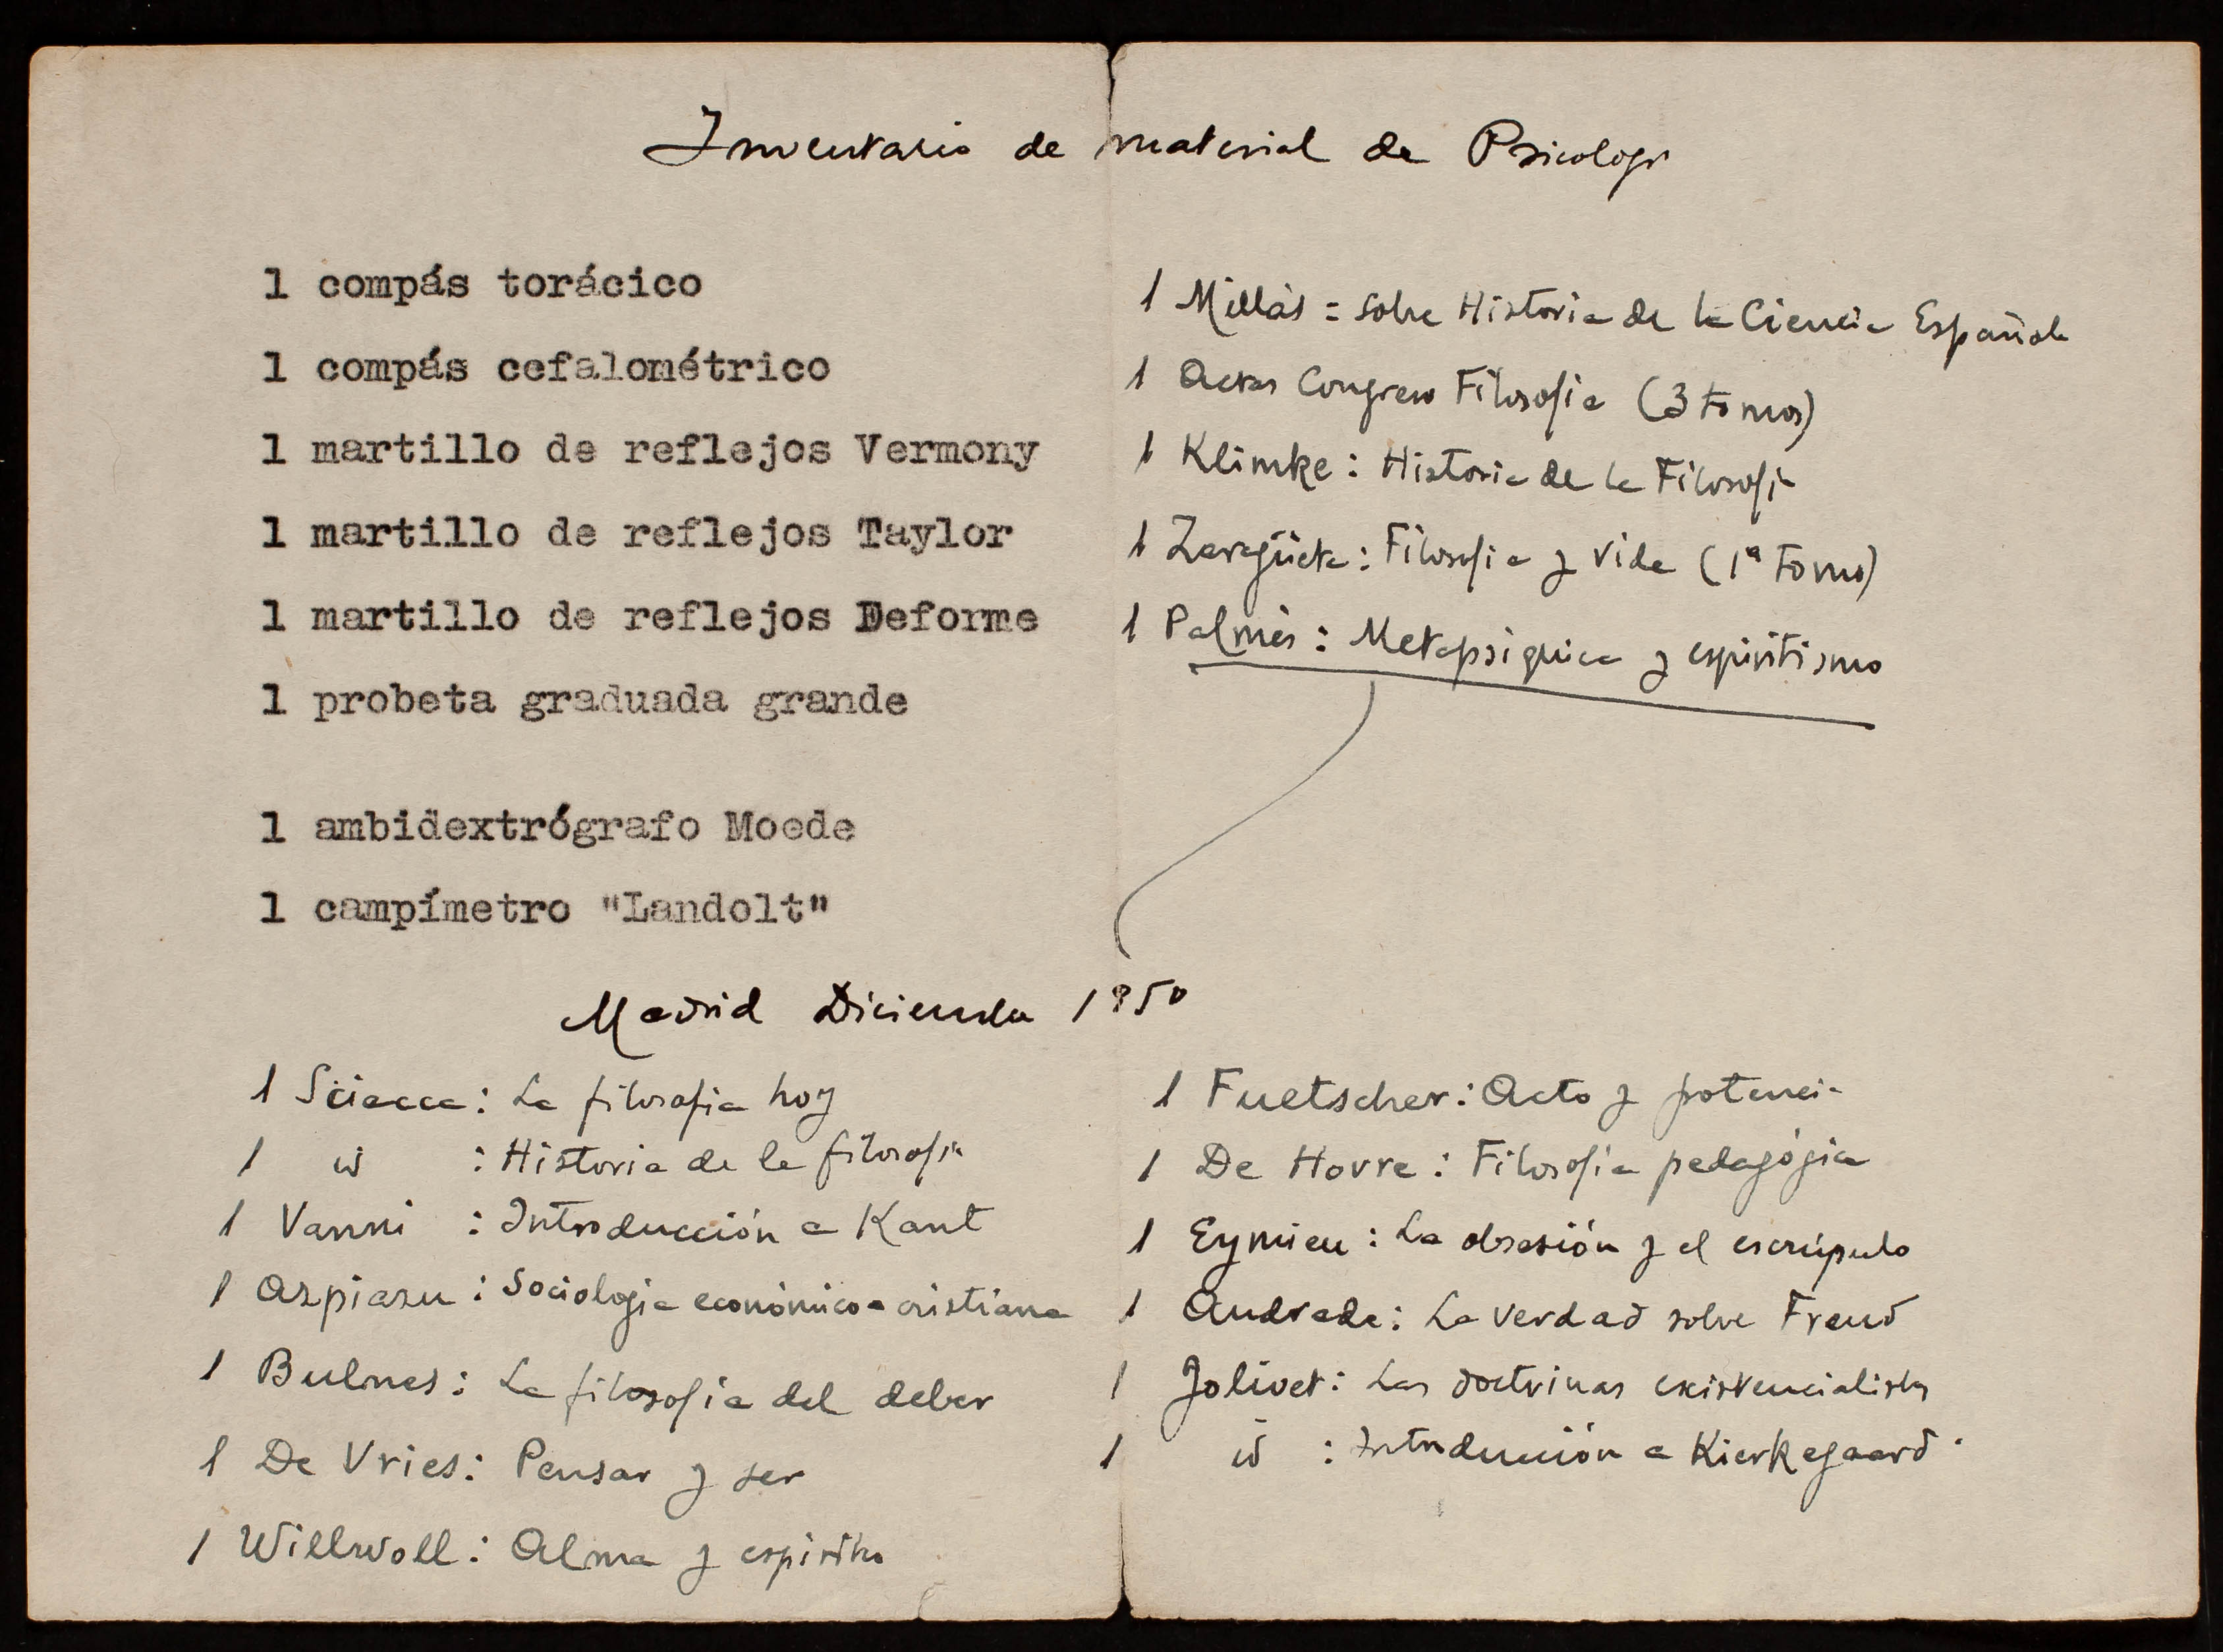 Inventario de material de Psicología
1 compás torácico
1 compás cefalométrico
1 martillo de reflejos Vermony
1 martillo de reflejos Taylor
1 martillo de reflejos Deforme
1 probeta graduada grande
1 ambidextrógrafo Moede
1 campímetro "Landolt"
Madrid Diciembre 1950
1 Sciacca: La filosofia hoy
1 id : Historia de la filosofia
1 Vanni : Introducción a Kant
1 Azpiazu: Sociologia económico-cristiana
1 Bulnes: La filosofia del deber
1 De Vries: Pensar y ser
1 Willwoll: Alma y espiritu
1 Millás = Sobre Historia de la Ciencia Española
1 Actas Congreso Filosofia (3 tomos)
1 Klimke: Historia de la Filosofia
1 Zaragüeta: Filosofia y vida (1ª Tomo)
1 Palmés: Metapsiquica y espiritismo
1 Fuetscher: Acto y potencia
1 De Hovre: Filosofia pedagógica
1 Eymieu: La obsesión y el escrúpulo
1 Andrade: La verdad sobre Freud
1 Jolivet: Las doctrinas existencialistas
1 id : Introducción a Kierkegaard